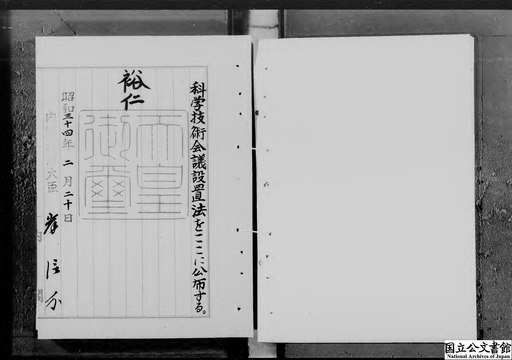 科学技術会議設置法をここに公布する。
裕仁
天皇
御璽
昭和三十四年二月二十日
大臣
岸信介
国立公文書館
National Archives of Japan